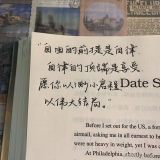 "自由的前提是自律
自律的顶端是享受
愿你以渺小启程
以伟大结局。"
Date S
Before I set out for the US, a
airmail, asking me in all earnest to br
were not heavy in weight, yet I was
At Philadelphia, shortly before